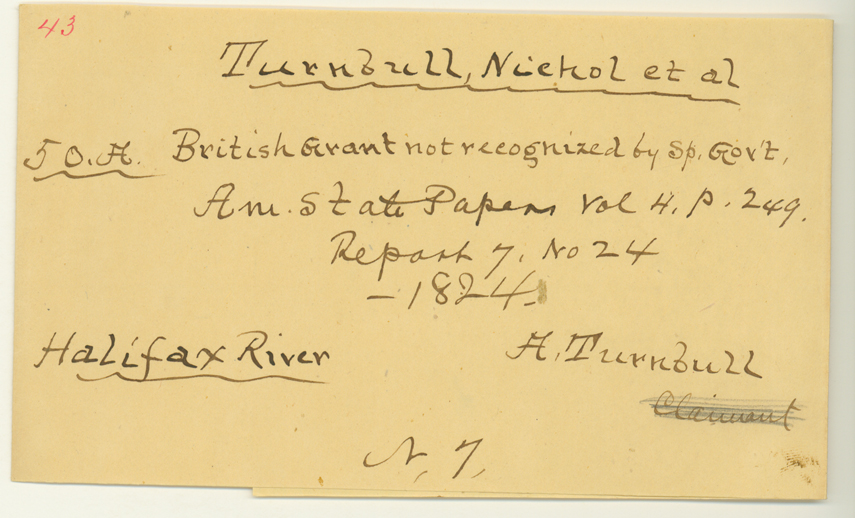 43
Turnbull, Nichol et al
50.A. British Grant not recognized by Sp. Gov't,
Am. State Papers Vol 4. p. 249.
Report 7. No 24
- 1824.
Halifax River
A. Turnbull
Claimant
N, 7,